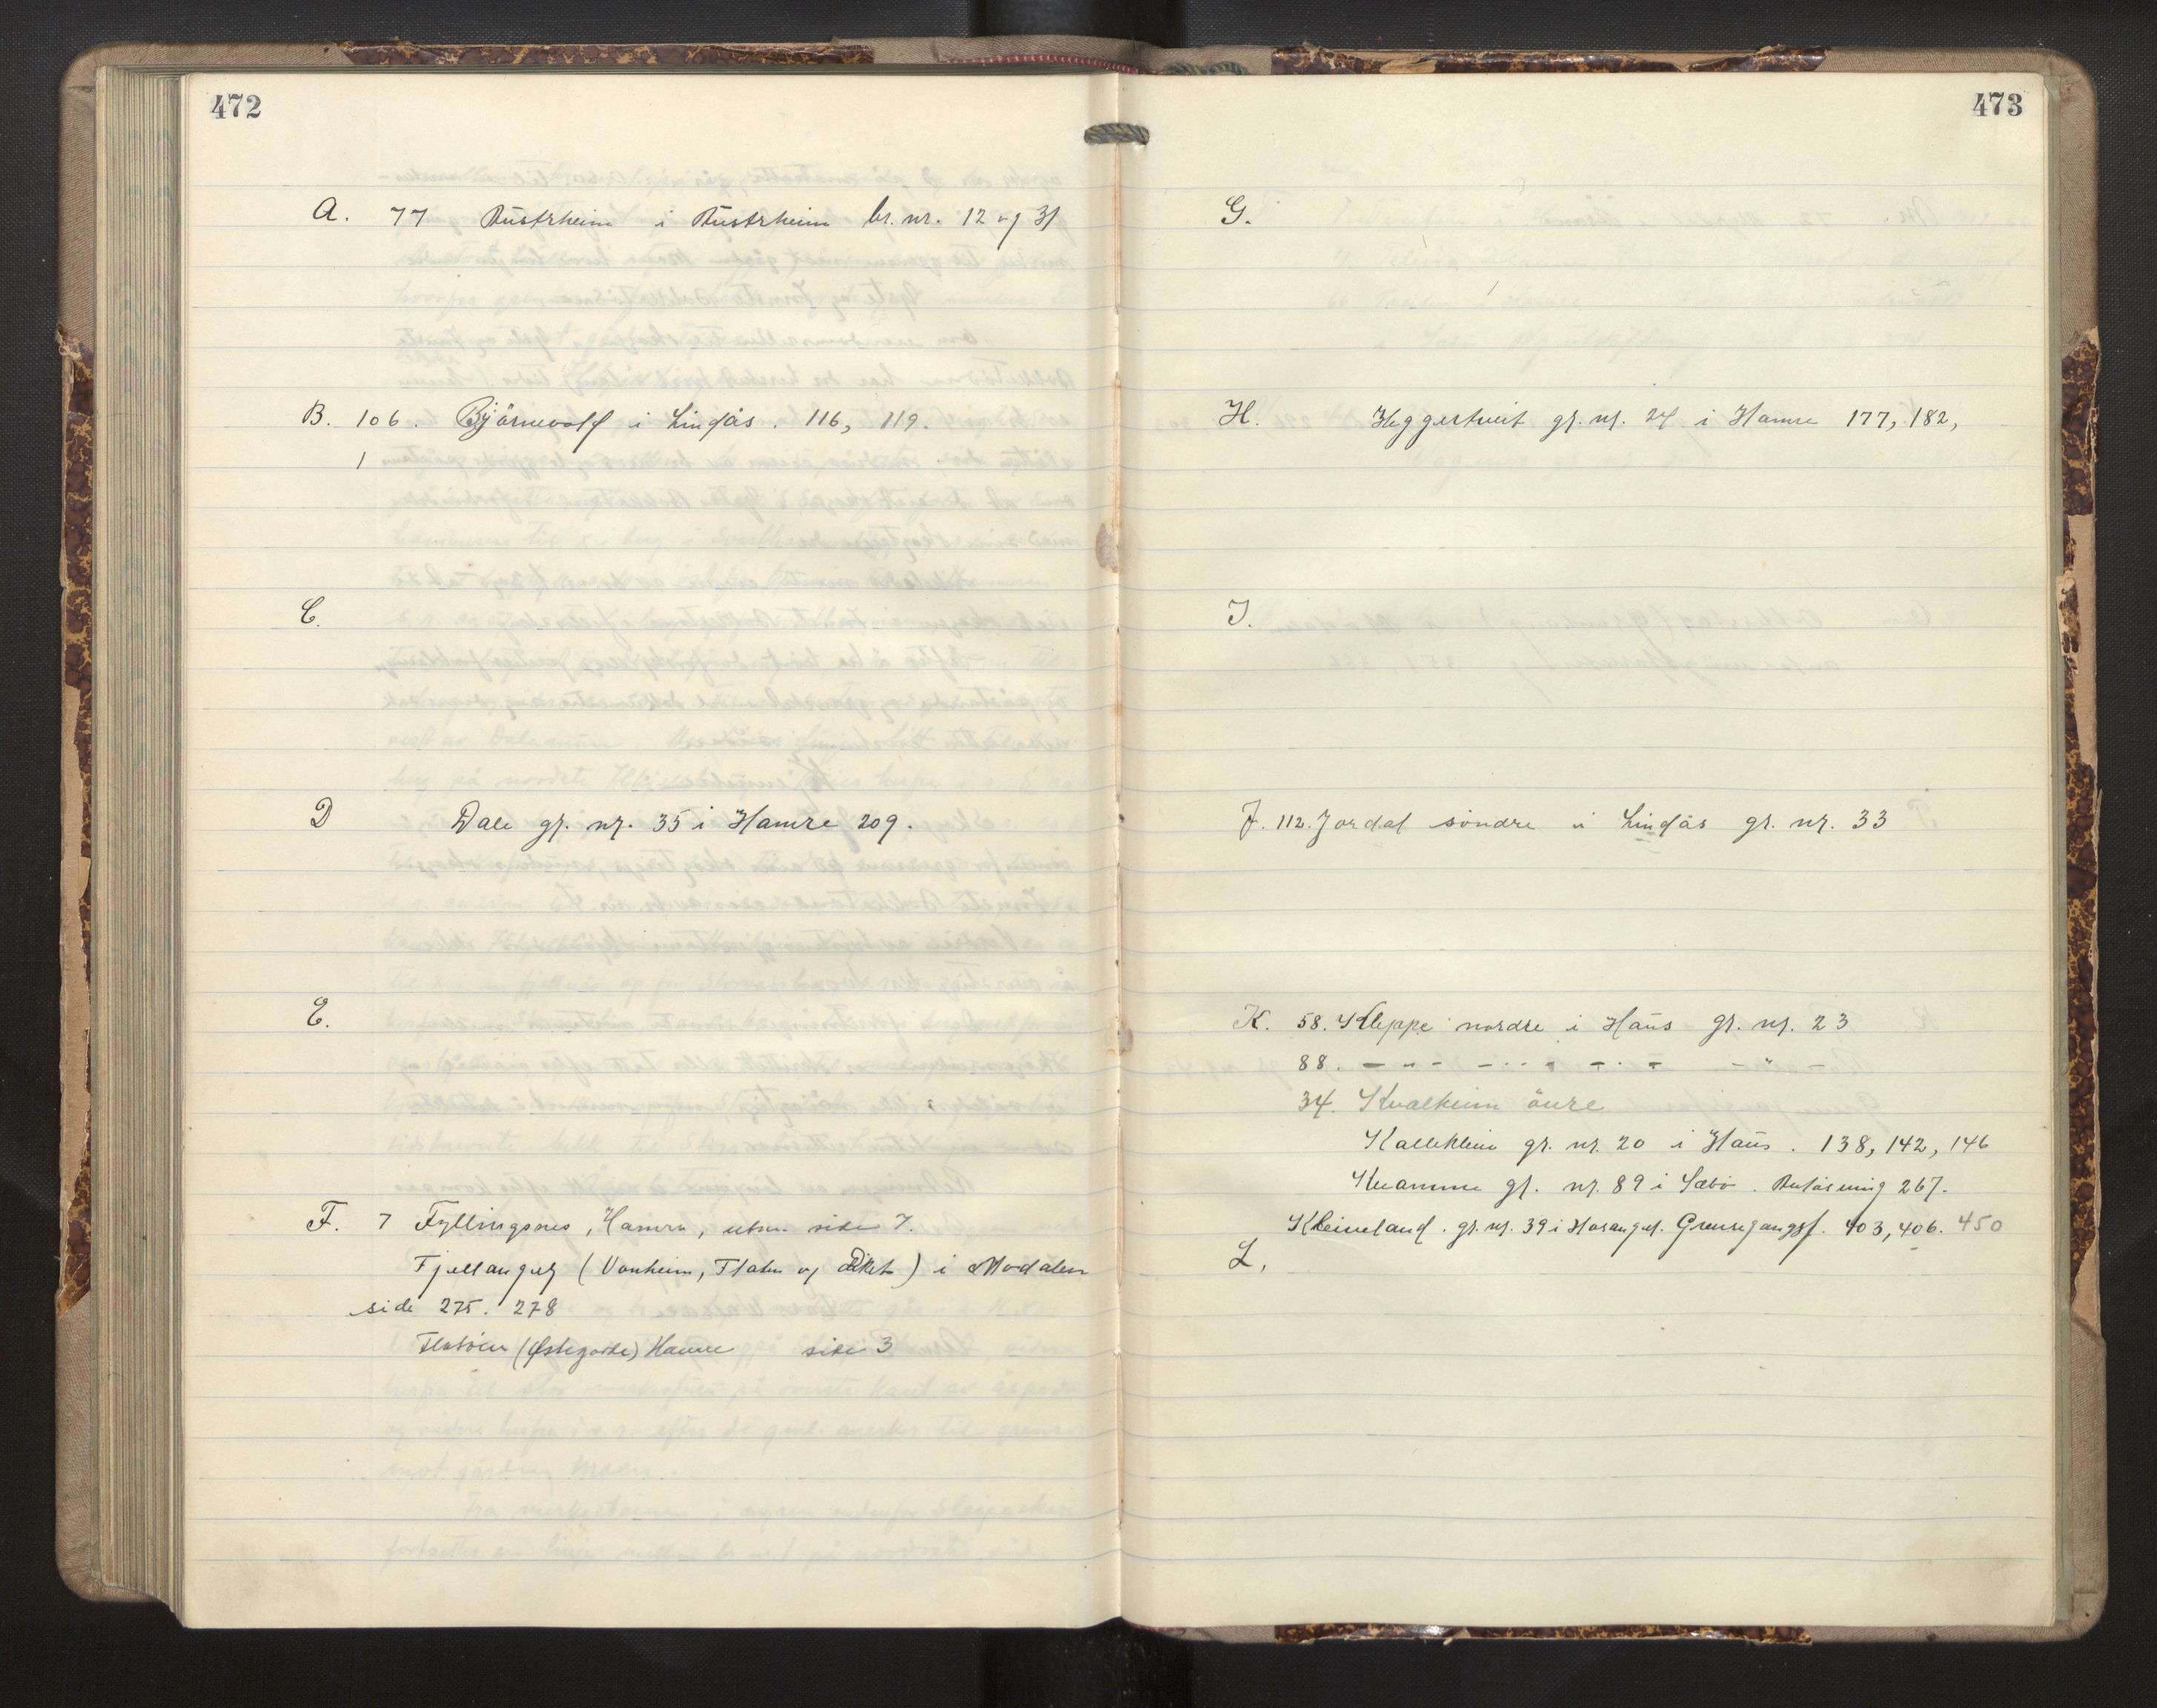 472
A. 77 Austrheim i Austrheim br. nr. 12 og 31
B. 106. Bjørnevold i Lindås. 116, 119.
1
C.
D Dale gr. nr. 35 i Hamre 209.
E.
F. 7 Fyllingsnes, Hamre, utsn. side 7.
Fjellanger (Vonheim, Flaten og Øiket) i Modalen
side 275. 278
Flatøen (Østegarde) Hamre side 3
473
G.
H. Heggertveit gr. nr. 24 i Hamre 177, 182,
I.
J. 112. Jordal söndre i Lindås gr. nr. 33
K. 58. Kleppe nordre i Haŭs gr. nr. 23
88. — " — — " — — " — — " —
34. Kvalheim öure
Kallekleiv gr. nr. 20 i Haŭs. 138, 142, 146
Kvamme gr. nr. 89 i Sæbö. Avløsning 267.
Kleiveland. gr. nr. 39 i Hosanger. Grensegangsf. 403, 406. 450
L.